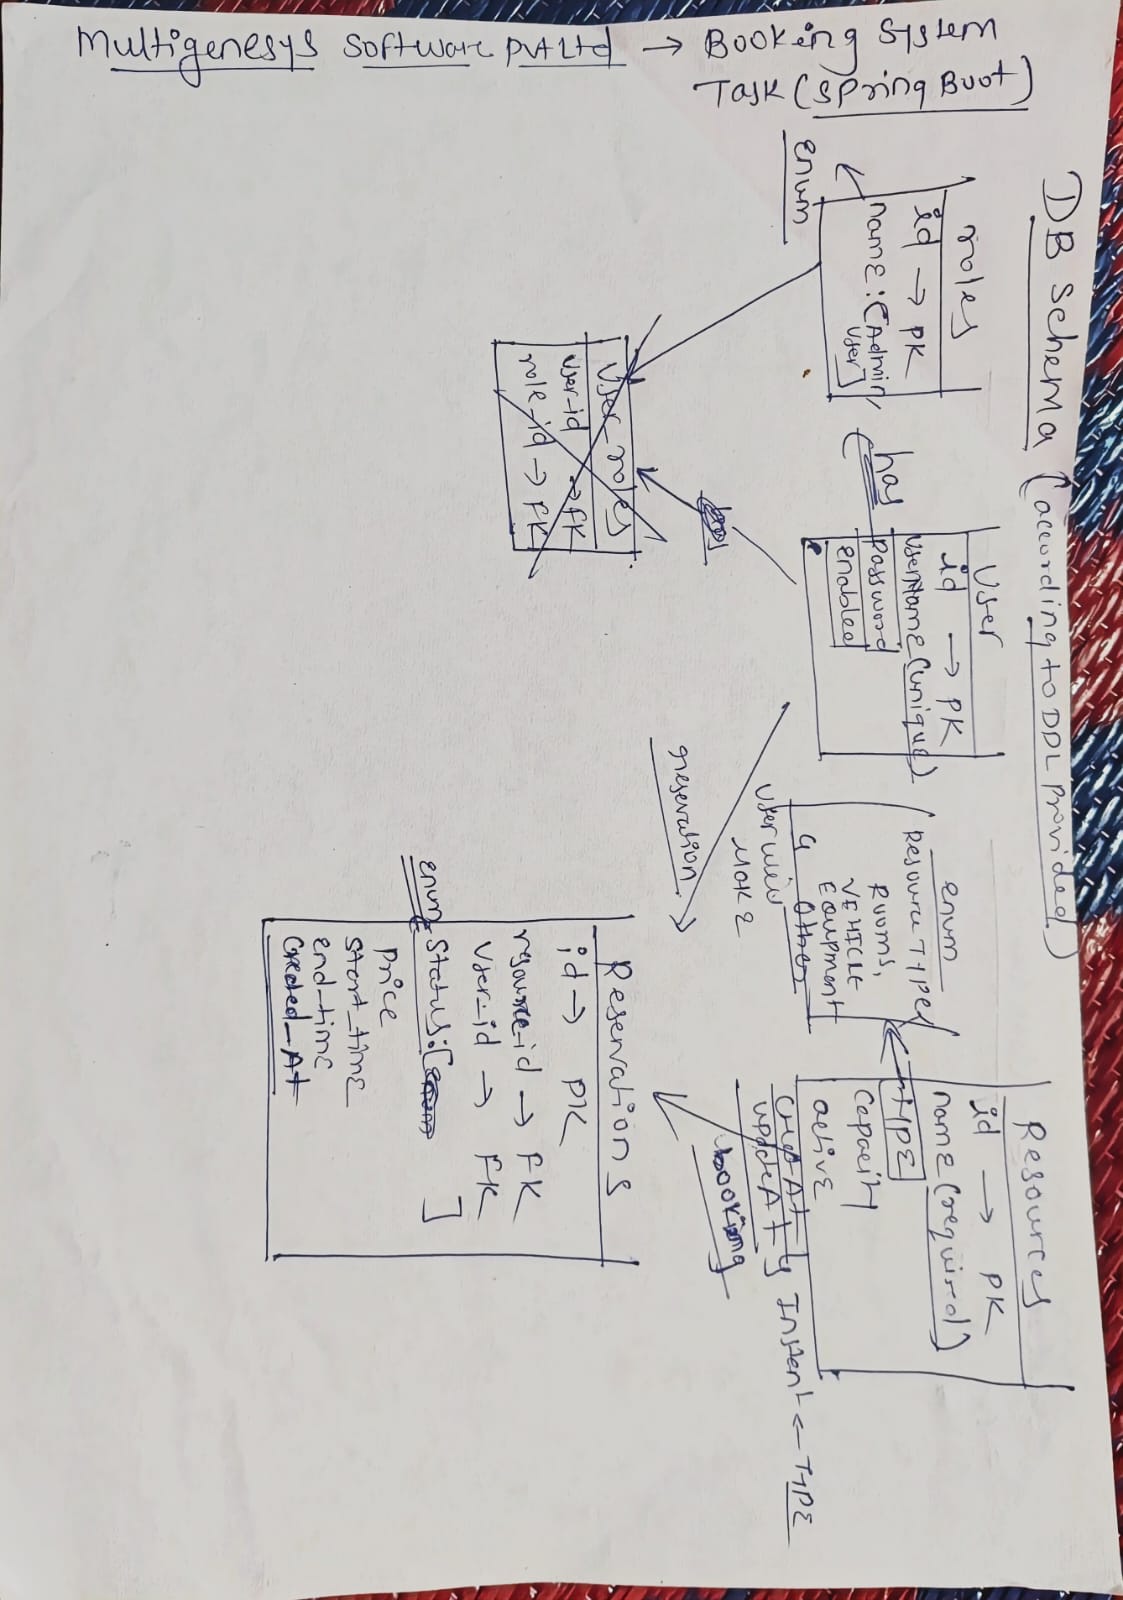 Multigenesys Software Pvt Ltd → Booking System
Task (Spring Boot)
DB Schema (according to DDL Provided)
roles
id → PK
name: [Admin,
User]
enum
has
User
id → PK
username (unique)
Password
enabled
User_roles
user_id → FK
role_id → FK
enum
Resource Types
ROOMS,
VEHICLE
EQUIPMENT
Other
User will
make
reservation
Resources
id → PK
name (required)
TYPE
Capacity
active
updateAt
Instant ← TYPE
booking
Reservations
id → PK
resource_id → FK
user_id → FK
enum
Status: [ ]
Price
start_time
end_time
Created_At